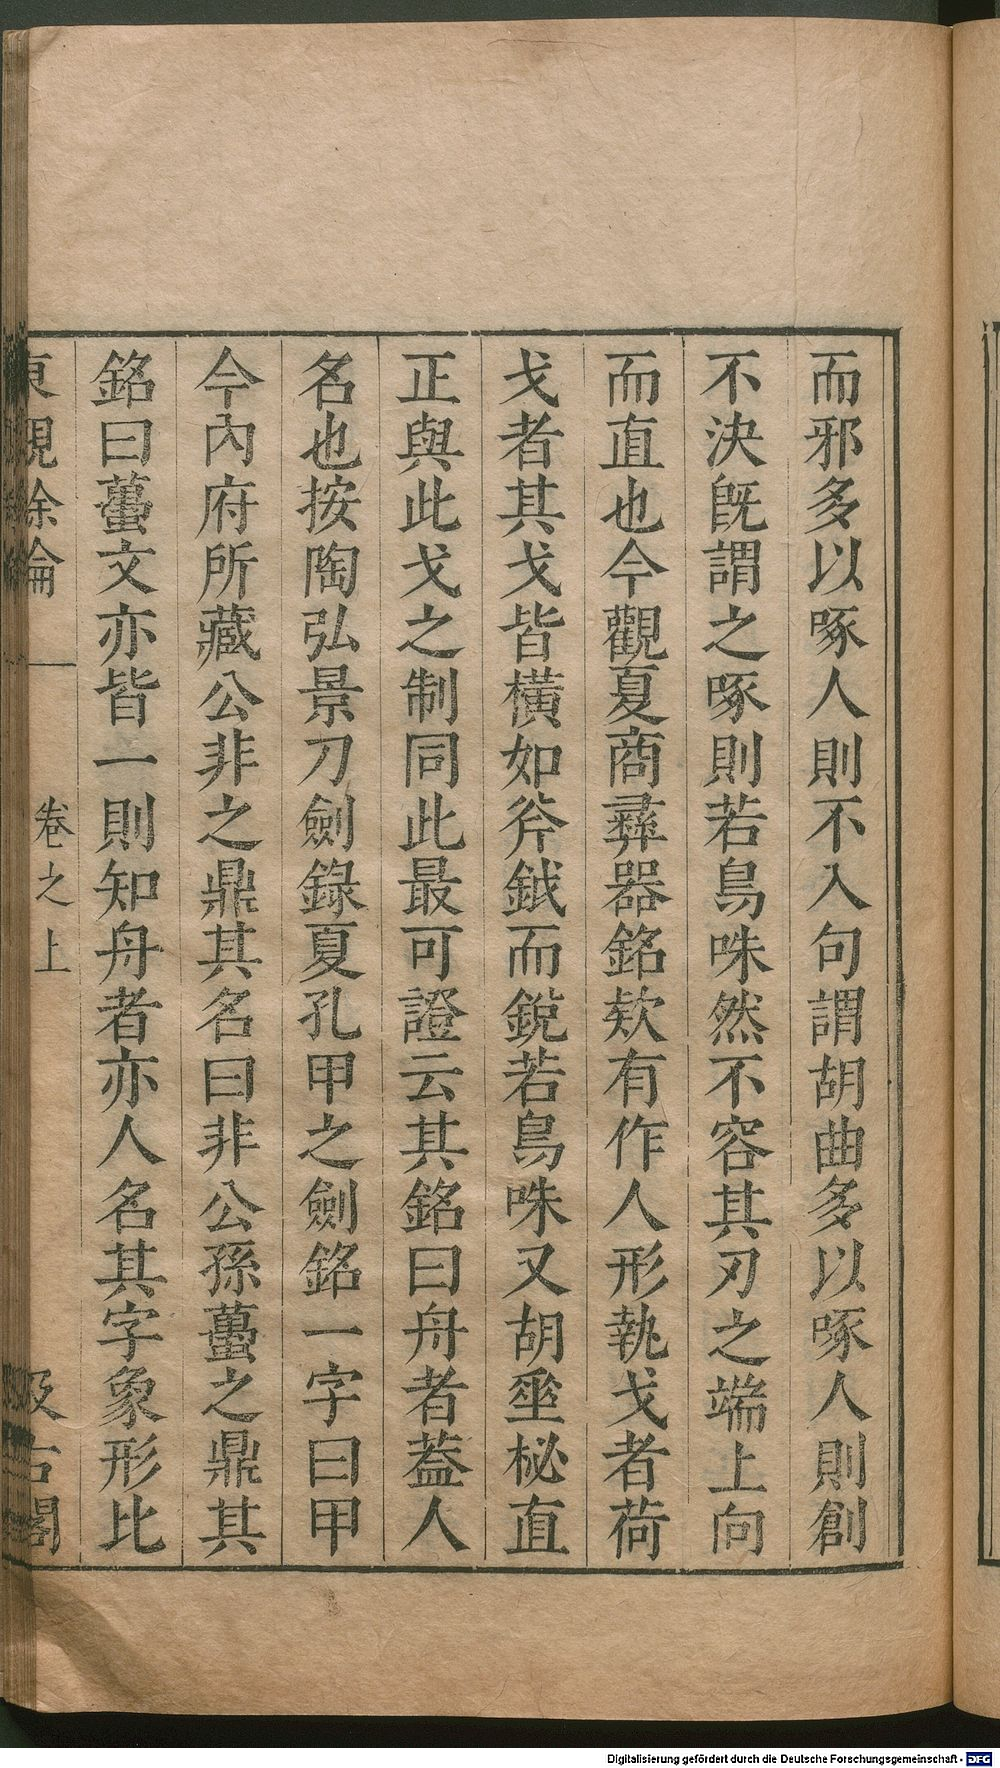 而邪多以啄人則不入句謂胡曲多以啄人則創
不決旣謂之啄則若鳥咮然不容其刃之端上向
而直也今觀夏商彛器銘欵有作人形執戈者荷
戈者其戈皆橫如斧鉞而銳若鳥咮又胡垂柲直
正與此戈之制同此最可證云其銘曰舟者葢人
名也按陶弘景刀劍錄夏孔甲之劍銘一字曰甲
今內府所藏公非之鼎其名曰非公孫蠆之鼎其
銘曰蠆文亦皆一則知舟者亦人名其字象形比
東觀餘論 卷之上 汲古閣
Digitalisierung gefördert durch die Deutsche Forschungsgemeinschaft - DFG